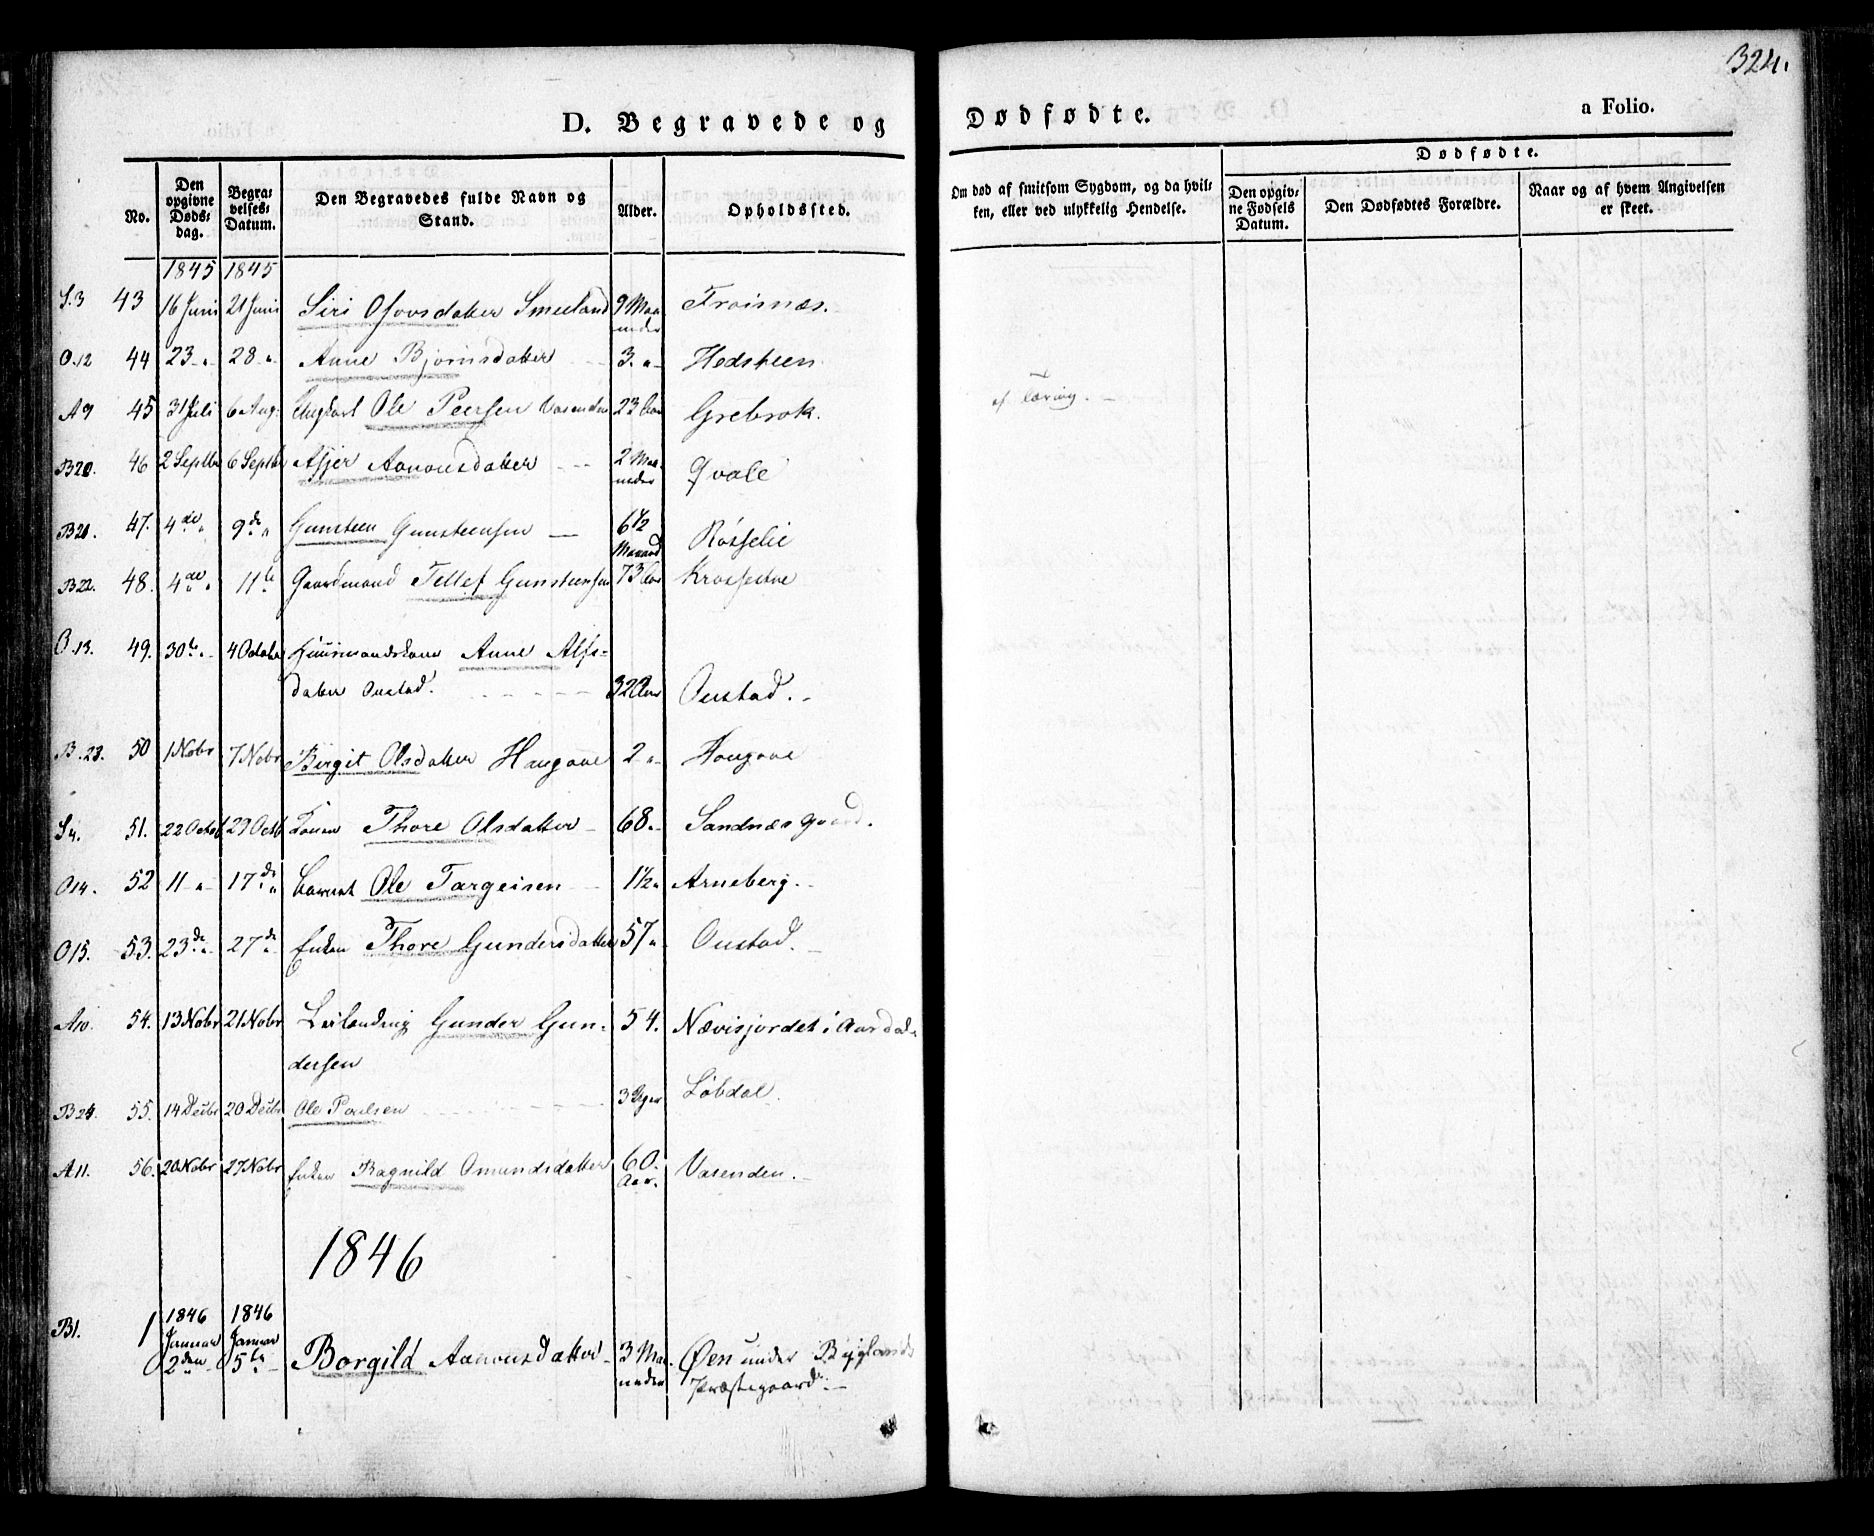 324.
D. Begravede og Dødfødte. a Folio.
No.
Den opgivne Døds-dag.
Begra-velses-Datum.
Den Begravedes fulde Navn og Stand.
Alder.
Opholdssted.
Om død af smitsom Sygdom, og da hvil-ken, eller ved ulykkelig Hendelse.
Dødfødte.
Den opgiv-ne Fødsels Datum.
Den Dødfødtes Forældre.
Naar og af hvem Angivelsen er skeet.
1845 1845
S.3 43 16 Juni 21 Juni Siri Osovsdatter Smeeland 9 Maa-neder Froisnæs.
O.12 44 23 " 28 " Anne Bjørnsdatter 3 " Hedsteen
A9 45 31 Juli 6 Aug. Ungkarl Ole Peersen Vasenden 23 Aar Grebrok. af Tæring.
B20. 46 2 Septbr 6 Septbr Asjer Aanonsdatter 2 Maa-neder Qvale
B21. 47. 4de " 9de " Gunsteen Gunsteensen 6 1/2 Maaned Røsselie
B22. 48. 4de " 11te Gaardmand Tellef Gunsteensen 73 Aar
O.13. 49. 30te " 4 October Huusmandskone Anne Alfs-
datter Oustad. 32 Aar Oustad.
B.23. 50 1 Nobr 7 Nobr Birgit Olsdatter Haugaae 2 " Haugaae
S4. 51. 22 Octob 29 Octb Konen Thore Olsdatter 68 " Sandnæs gaard.
O14. 52 11 " 17de " Barnet Ole Targeisen 1 1/2 " Arneberg.
O15. 53. 23de " 27de " Enken Thore Gundersdatter 57 " Oustad.
A10. 54. 13 Nobr 21 Nobr Leilænding Gunder Gun-
dersen 54. Nævisjordet i Aardal
B24. 55. 14 Decbr 20 Decbr Ole Paulsen 3 Uger Løbdal.
A11. 56. 20 Nobr 27 Nobr Enken Ragnild Omundsdatter 60 Aar. Vasenden.
1846
1846 1846
B1. 1 Januar 2den Januar 5te Borgild Aanonsdatter 3 Maa-neder Øen under Byglands
Præstegaard.